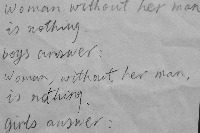 woman without her man
is nothing
boys answer:
woman, without her man,
is nothing.
girls answer: